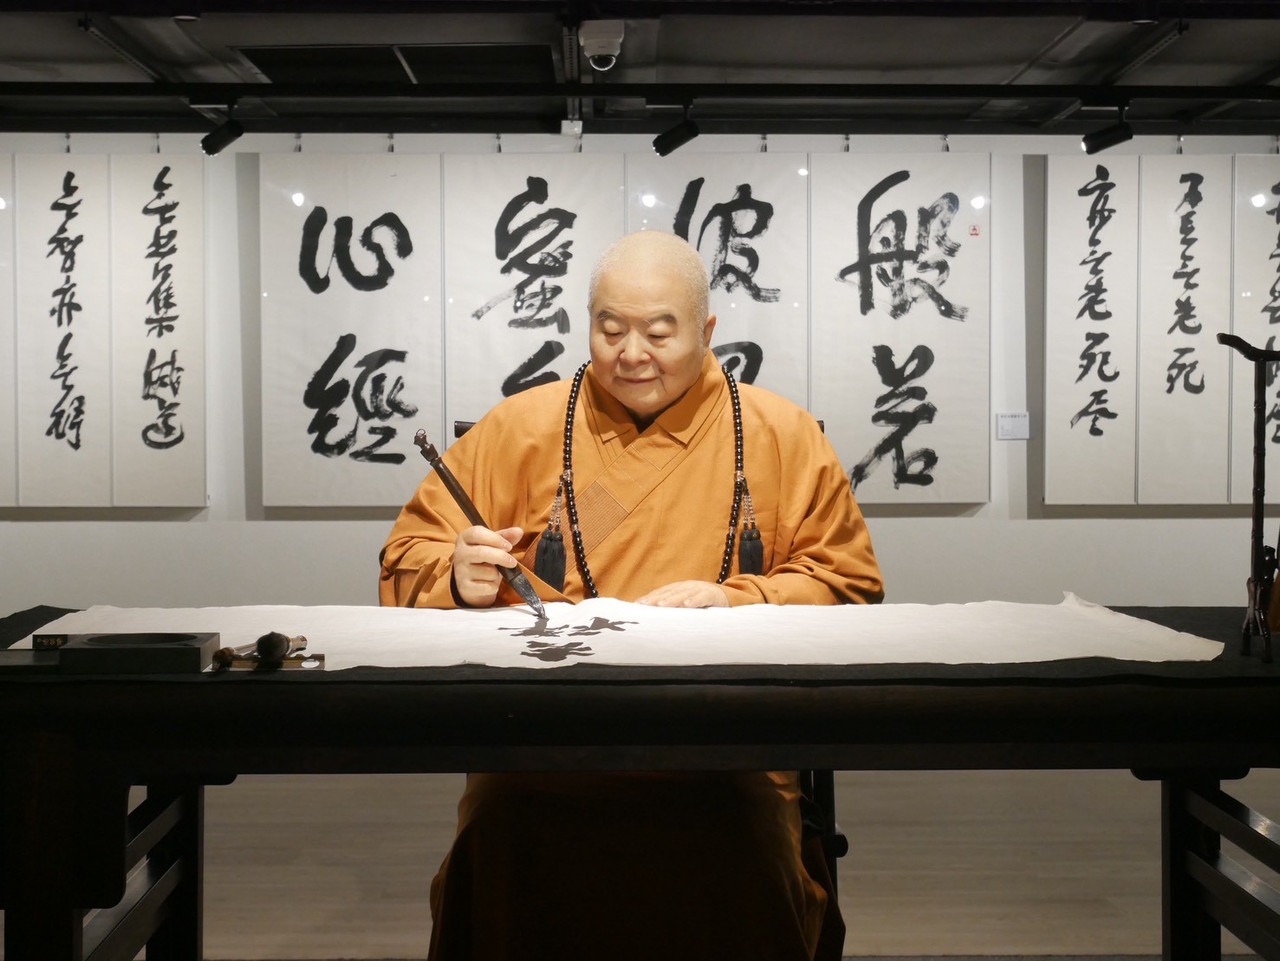 乃至無老死
亦無老死盡
般若
波
蜜
心經
無苦集滅道
無智亦無得